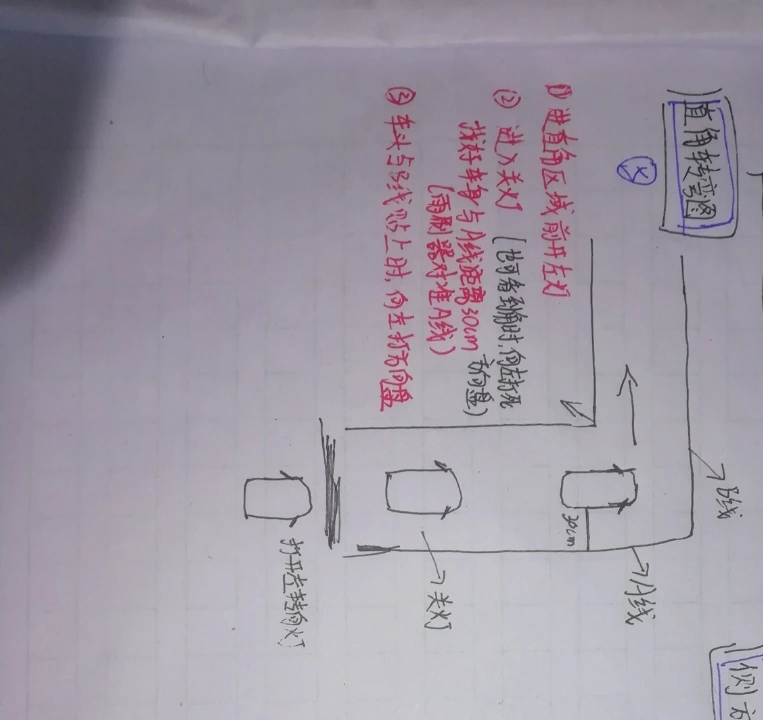 直角转弯图
①进直角区域前开左灯
②进入关灯 [也可看到角时,向左打死
方向盘)
找好车身与A线距离30cm
(雨刷器对准A线)
③车头与B线贴上时,向左打方向盘
B线
A线
30cm
关灯
打开左转向灯
侧方